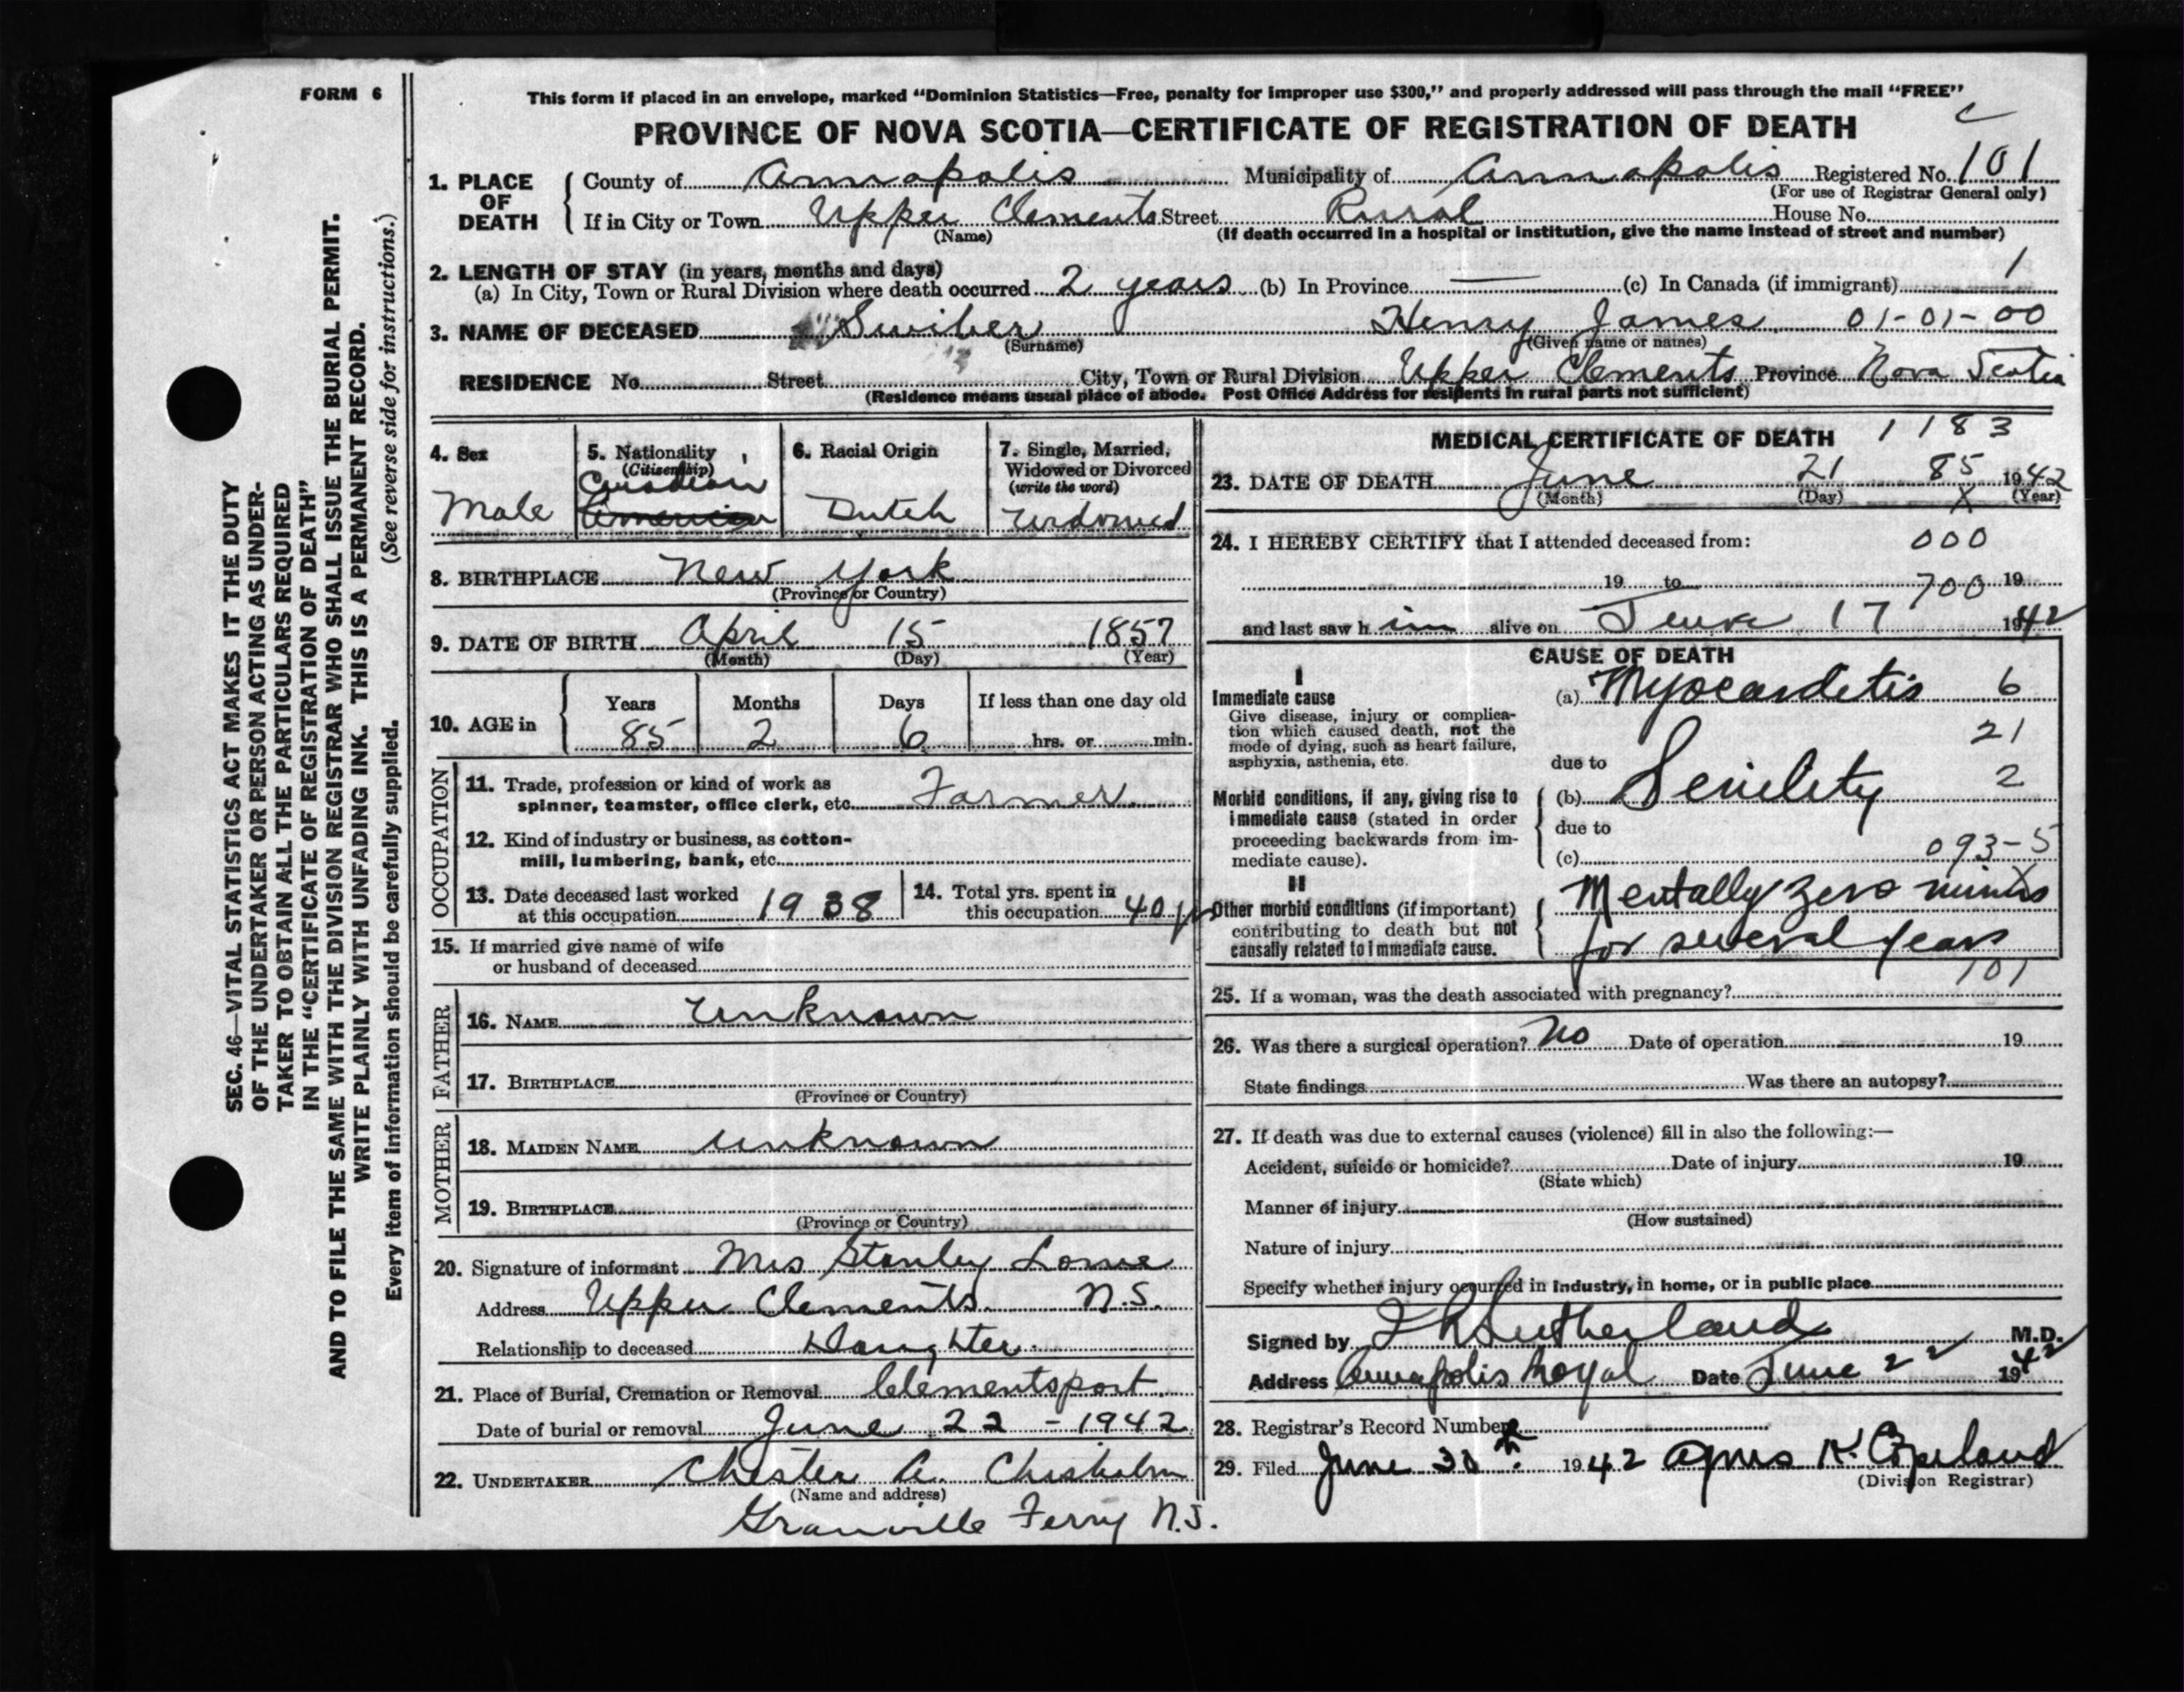 FORM 6
This form if placed in an envelope, marked "Dominion Statistics—Free, penalty for improper use $300," and properly addressed will pass through the mail "FREE"
PROVINCE OF NOVA SCOTIA—CERTIFICATE OF REGISTRATION OF DEATH
1. PLACE OF DEATH County of Annapolis Municipality of Annapolis Registered No. 101
(For use of Registrar General only)
If in City or Town Upper Clements Street Rural House No.
(Name) (If death occurred in a hospital or institution, give the name instead of street and number)
2. LENGTH OF STAY (in years, months and days) 1
(a) In City, Town or Rural Division where death occurred 2 years (b) In Province — (c) In Canada (if immigrant)
3. NAME OF DECEASED Henry James 01-01-00
(Surname) (Given name or names)
RESIDENCE No. Street City, Town or Rural Division Upper Clements Province Nova Scotia
(Residence means usual place of abode. Post Office Address for residents in rural parts not sufficient)
4. Sex 5. Nationality (Citizenship) 6. Racial Origin 7. Single, Married, Widowed or Divorced (write the word)
Canadian
Male American Dutch Widowed
8. BIRTHPLACE New York
(Province or Country)
9. DATE OF BIRTH April 15 1857
(Month) (Day) (Year)
10. AGE in Years Months Days If less than one day old
85 2 6 hrs. or min.
OCCUPATION
11. Trade, profession or kind of work as
spinner, teamster, office clerk, etc. Farmer
12. Kind of industry or business, as cotton-
mill, lumbering, bank, etc.
13. Date deceased last worked at this occupation 1938 14. Total yrs. spent in this occupation 40 yrs
15. If married give name of wife
or husband of deceased
FATHER
16. NAME Unknown
17. BIRTHPLACE
(Province or Country)
MOTHER
18. MAIDEN NAME Unknown
19. BIRTHPLACE
(Province or Country)
20. Signature of informant Mrs Stanley
Address Upper Clements N.S.
Relationship to deceased Daughter
21. Place of Burial, Cremation or Removal Clementsport
Date of burial or removal June 22 - 1942
22. UNDERTAKER Chester A. Chisholm
(Name and address)
Granville Ferry N.S.
MEDICAL CERTIFICATE OF DEATH 1183
23. DATE OF DEATH June 21 85 1942
(Month) (Day) X (Year)
24. I HEREBY CERTIFY that I attended deceased from: 000
19 to 700 19
and last saw h im alive on June 17 1942
CAUSE OF DEATH
I
Immediate cause (a) Myocarditis 6
Give disease, injury or complica-
tion which caused death, not the
mode of dying, such as heart failure,
asphyxia, asthenia, etc. due to 21
Morbid conditions, if any, giving rise to (b) Senility 2
immediate cause (stated in order
proceeding backwards from im- due to
mediate cause). (c) 093-5
II
Other morbid conditions (if important) Mentally zero minus
contributing to death but not
causally related to immediate cause. for several years
101
25. If a woman, was the death associated with pregnancy?
26. Was there a surgical operation? No Date of operation 19
State findings Was there an autopsy?
27. If death was due to external causes (violence) fill in also the following:—
Accident, suicide or homicide? Date of injury 19
(State which)
Manner of injury
(How sustained)
Nature of injury
Specify whether injury occurred in industry, in home, or in public place
Signed by Sutherland M.D.
Address Annapolis Royal Date June 22 1942
28. Registrar's Record Number
29. Filed June 30th 1942 Agnes K. Copeland
(Division Registrar)
SEC. 46—VITAL STATISTICS ACT MAKES IT THE DUTY
OF THE UNDERTAKER OR PERSON ACTING AS UNDER-
TAKER TO OBTAIN ALL THE PARTICULARS REQUIRED
IN THE "CERTIFICATE OF REGISTRATION OF DEATH"
AND TO FILE THE SAME WITH THE DIVISION REGISTRAR WHO SHALL ISSUE THE BURIAL PERMIT.
WRITE PLAINLY WITH UNFADING INK. THIS IS A PERMANENT RECORD.
Every item of information should be carefully supplied. (See reverse side for instructions.)